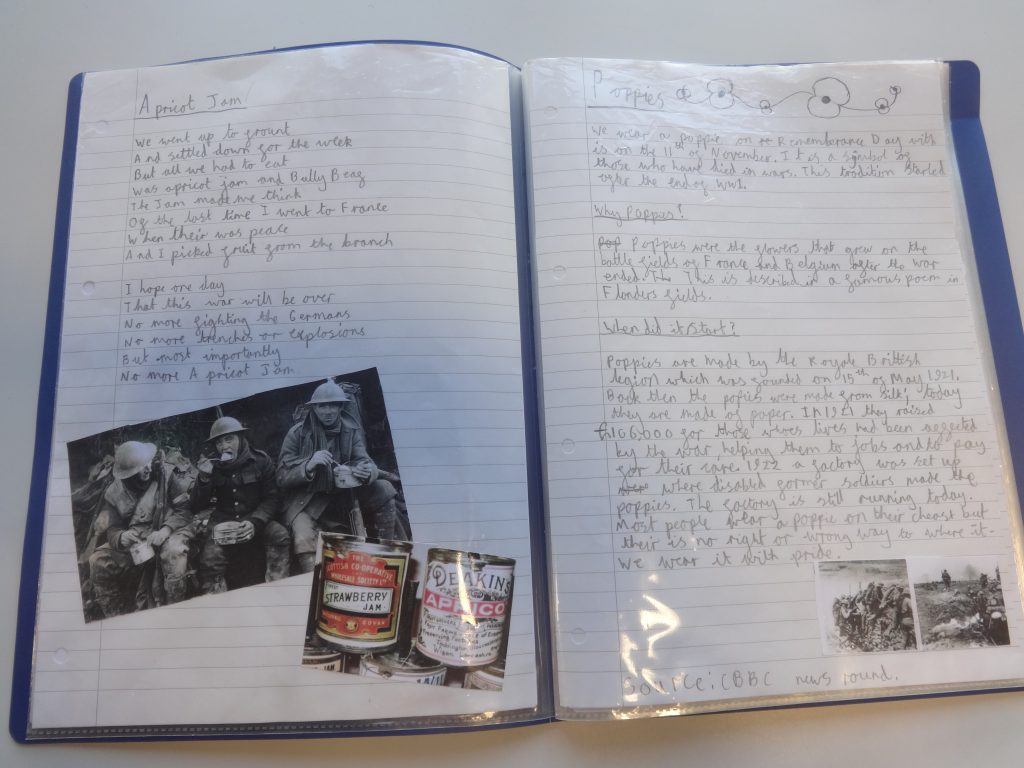 Apricot Jam
We went up to front
And settled down for the week
But all we had to eat
Was apricot jam and Bully Beaf
The Jam made me think
Of the last time I went to France
When their was pease
And I picked fruit from the branch
I hope one day
That this war will be over
No more fighting the Germans
No more trenches or explosions
But most importantly
No more Apricot Jam
THE
SCOTTISH CO-OPERATIVE
WHOLESALE SOCIETY LTD
STRAWBERRY
JAM
DEAKIN'S
APRICO
JAM
Poppies
We wear a poppie on Rememberance Day with
is on the 11th of November. It is a symbol of
those who have died in wars. This tradition started
after the end of WW1.
Why Poppies?
Poppies were the flowers that grew on the
battle fields of France and Belgium after the war
ended. This is described in a famous poem in
Flanders fields.
When did it Start?
Poppies are made by the Royale British
legion which was founded on 15th of May 1921.
Back then the poppies were made from silk, today
they are made of paper. In 1921 they raised
£106,000 for those whoes lives had been affected
by the war helping them to jobs and to pay
for their care. 1922 a factory was set up
where disabled former soldiers made the
poppies. The factory is still running today.
Most people wear a poppie on their cheast but
their is no right or wrong way to where it-
We wear it with pride.
Source: CBBC news round.